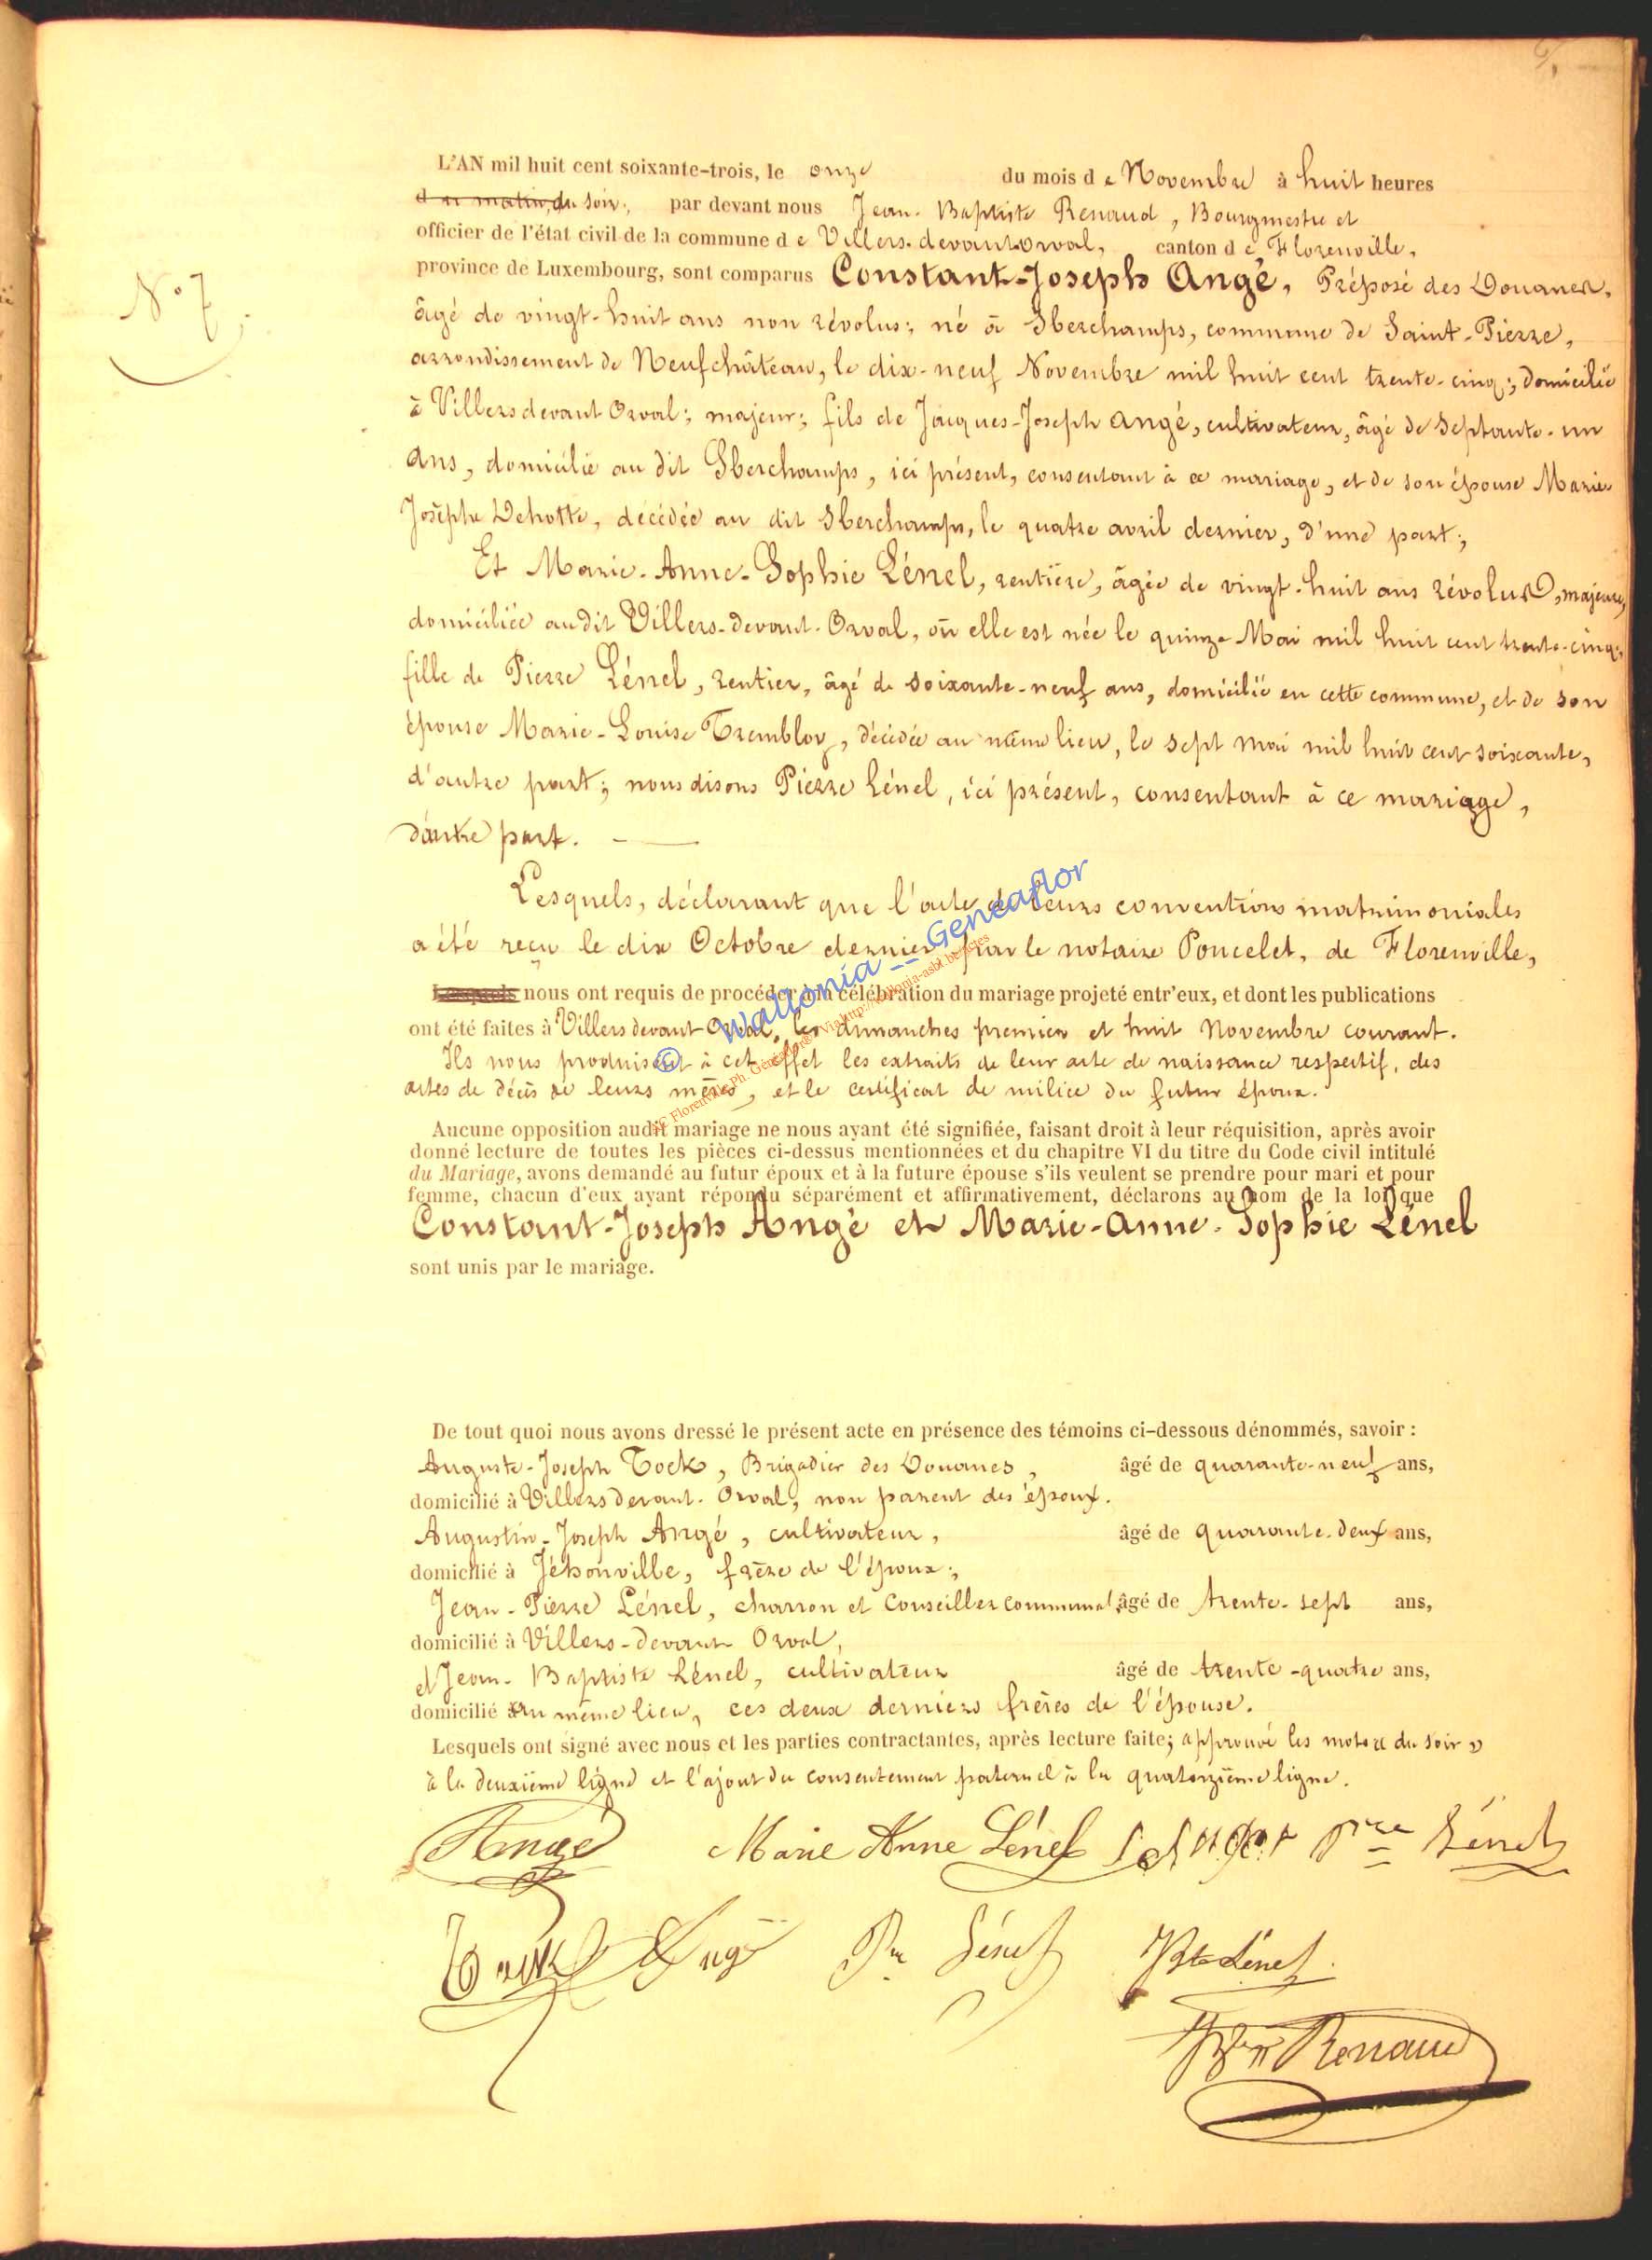 N° 7.
L'AN mil huit cent soixante-trois, le onze du mois de Novembre à huit heures
du matin, du soir; par devant nous Jean-Baptiste Renaud, Bourgmestre et
officier de l'état civil de la commune de Villers-devant-Orval, canton de Florenville,
province de Luxembourg, sont comparus Constant-Joseph Angé, Préposé des Douanes,
âgé de vingt-huit ans non révolus; né à Sberchamps, commune de Saint-Pierre,
arrondissement de Neufchâteau, le dix-neuf Novembre mil huit cent trente-cinq; domicilié
à Villers devant Orval; majeur; fils de Jacques-Joseph Angé, cultivateur, âgé de septante-un
ans, domicilié au dit Sberchamps, ici présent, consentant à ce mariage, et de son épouse Marie-
Josèphe Dehotte, décédée au dit Sberchamps, le quatre avril dernier, d'une part;
Et Marie-Anne-Sophie Lénel, rentière, âgée de vingt-huit ans révolus, majeure,
domiciliée audit Villers-devant-Orval, où elle est née le quinze Mai mil huit cent trente-cinq;
fille de Pierre Lénel, rentier, âgé de soixante-neuf ans, domicilié en cette commune, et de son
épouse Marie-Louise Trembloy, décédée au même lieu, le sept mai mil huit cent soixante,
d'autre part; nous disons Pierre Lénel, ici présent, consentant à ce mariage,
d'autre part. —
Lesquels, déclarant que l'acte de leurs conventions matrimoniales
a été reçu le dix Octobre dernier par le notaire Poncelet, de Florenville,
Lesquels nous ont requis de procéder à la célébration du mariage projeté entr'eux, et dont les publications
ont été faites à Villers devant Orval, les dimanches premier et huit Novembre courant.
Ils nous produisent à cet effet les extraits de leur acte de naissance respectif, des
actes de décès de leurs mères, et le certificat de milice du futur époux.
© Wallonia -- Geneaflor
Aucune opposition audit mariage ne nous ayant été signifiée, faisant droit à leur réquisition, après avoir
donné lecture de toutes les pièces ci-dessus mentionnées et du chapitre VI du titre du Code civil intitulé
du Mariage, avons demandé au futur époux et à la future épouse s'ils veulent se prendre pour mari et pour
femme, chacun d'eux ayant répondu séparément et affirmativement, déclarons au nom de la loi que
Constant-Joseph Angé et Marie-Anne-Sophie Lénel
sont unis par le mariage.
De tout quoi nous avons dressé le présent acte en présence des témoins ci-dessous dénommés, savoir :
Auguste-Joseph Tock, Brigadier des Douanes, âgé de quarante-neuf ans,
domicilié à Villers devant-Orval, non parent des époux.
Augustin-Joseph Angé, cultivateur, âgé de quarante-deux ans,
domicilié à Jéhonville, frère de l'époux;
Jean-Pierre Lénel, charron et Conseiller communal, âgé de trente-sept ans,
domicilié à Villers-devant Orval,
et Jean-Baptiste Lénel, cultivateur âgé de trente-quatre ans,
domicilié au même lieu, ces deux derniers frères de l'épouse.
Lesquels ont signé avec nous et les parties contractantes, après lecture faite; approuvé les mots « du soir »
à la deuxième ligne et l'ajout du consentement paternel à la quatorzième ligne.
Angé Marie Anne Lénel Pre Lénel
Tock Angé Pre Lénel JBte Lénel
Renaud